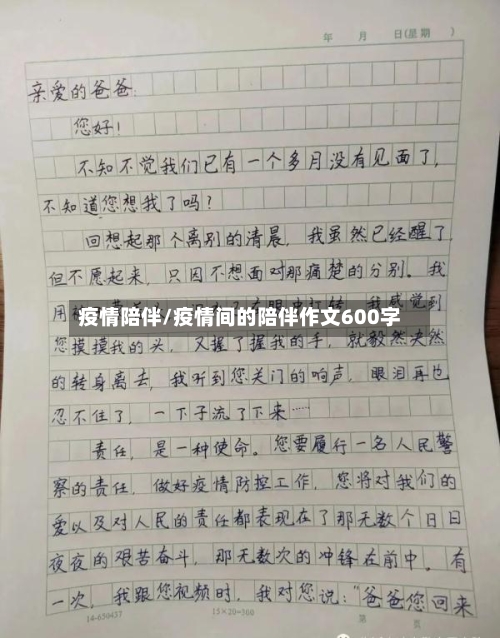 年 月 日(星期 )
亲爱的爸爸
您好！
不知不觉我们已有一个多月没有见面了，
不知道您想我了吗？
回想起那个离别的清晨，我虽然已经醒了，
但不愿起来，只因不想面对那痛楚的分别。我
用 我感觉到
疫情陪伴/疫情间的陪伴作文600字
您摸摸我的头，又握了握我的手，就毅然决然
的转身离去，我听到您关门的响声，眼泪再也
忍不住了，一下子流了下来……
责任，是一种使命。您要履行一名人民警
察的责任，做好疫情防控工作，您将对我们的
爱以及对人民的责任都表现在了那无数个日日
夜夜的艰苦奋斗，那无数次的冲锋在前中。有
一次，我跟您视频时，我对您说：“爸爸您回来
14-650457 15×20=300 第 页